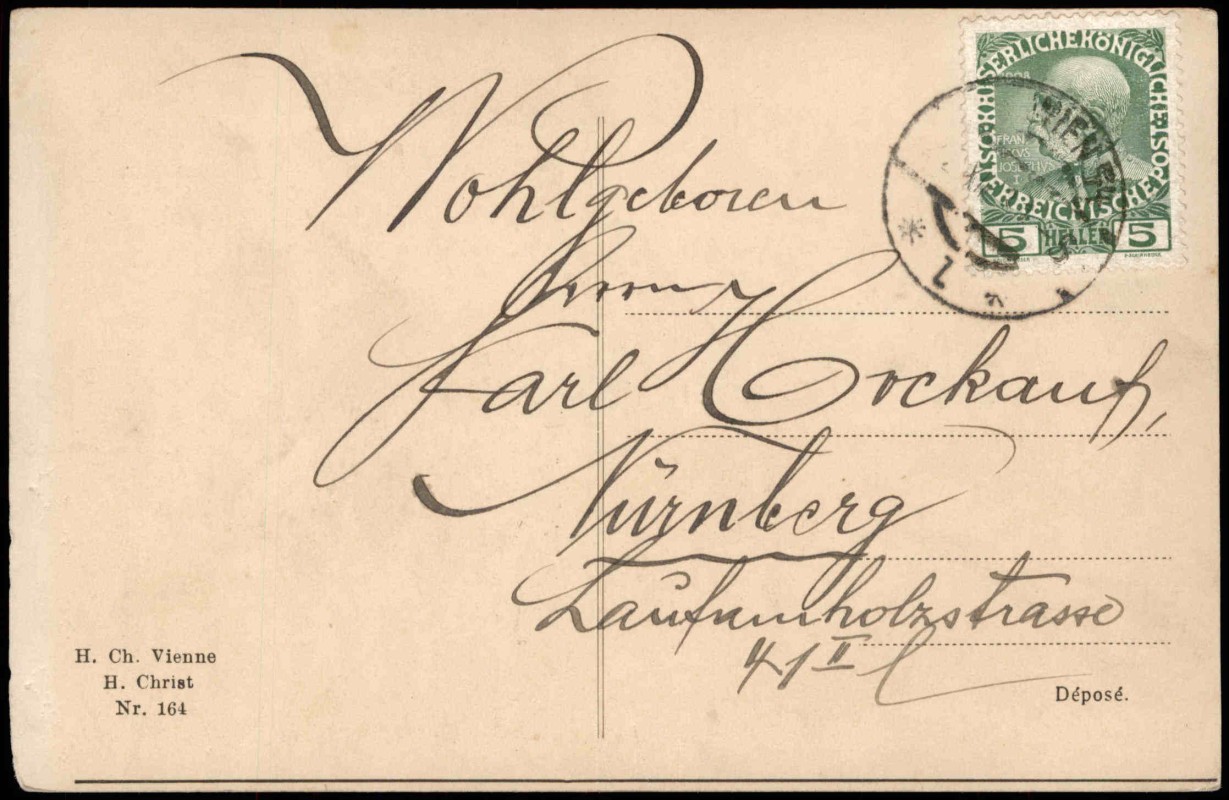 KAISERLICHE KÖNIGLICHE ÖSTERREICHISCHE POST
FRANC
IOSEPHVS
I
5 HELLER 5
WIEN
Wohlgeboren
Herrn
Karl Hockauf,
Nürnberg
Laufamholzstrasse
II l
H. Ch. Vienne
H. Christ
Nr. 164
Déposé.